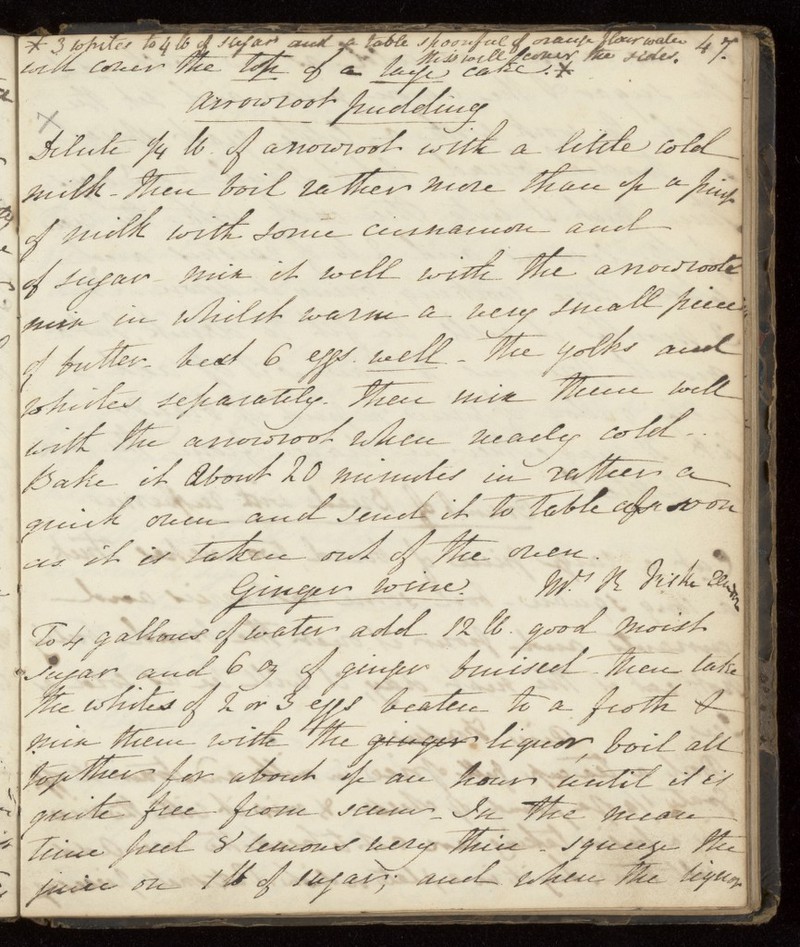 * 3 whites to 4 lb of sugar and a table spoonful of orange flour water 47.
this will cover the sides.
will cover the top of a large cake. *
Arrowroot pudding
Dilute 1/4 lb. of arrowroot with a little cold
milk - then boil rather more than 1/2 a pint
of milk with some cinnamon and
of sugar - mix it well with the arrowroot
mix in whilst warm a very small piece
of butter - beat 6 eggs well - the yolks and
whites separately. then mix them well
with the arrowroot when nearly cold -
Bake it about 20 minutes in rather a
quick oven and send it to table as soon
as it is taken out of the oven.
Ginger wine. Mrs R
To 4 gallons of water add 12 lb. good moist
sugar and 6 oz of ginger bruised - then take
the whites of 2 or 3 eggs beaten to a froth &
mix them with the ginger liquor, boil all
together for about 1/2 an hour until it is
quite free from scum - In the mean
time peel 8 lemons very thin - squeeze the
juice on 1 lb of sugar; and when the liquor